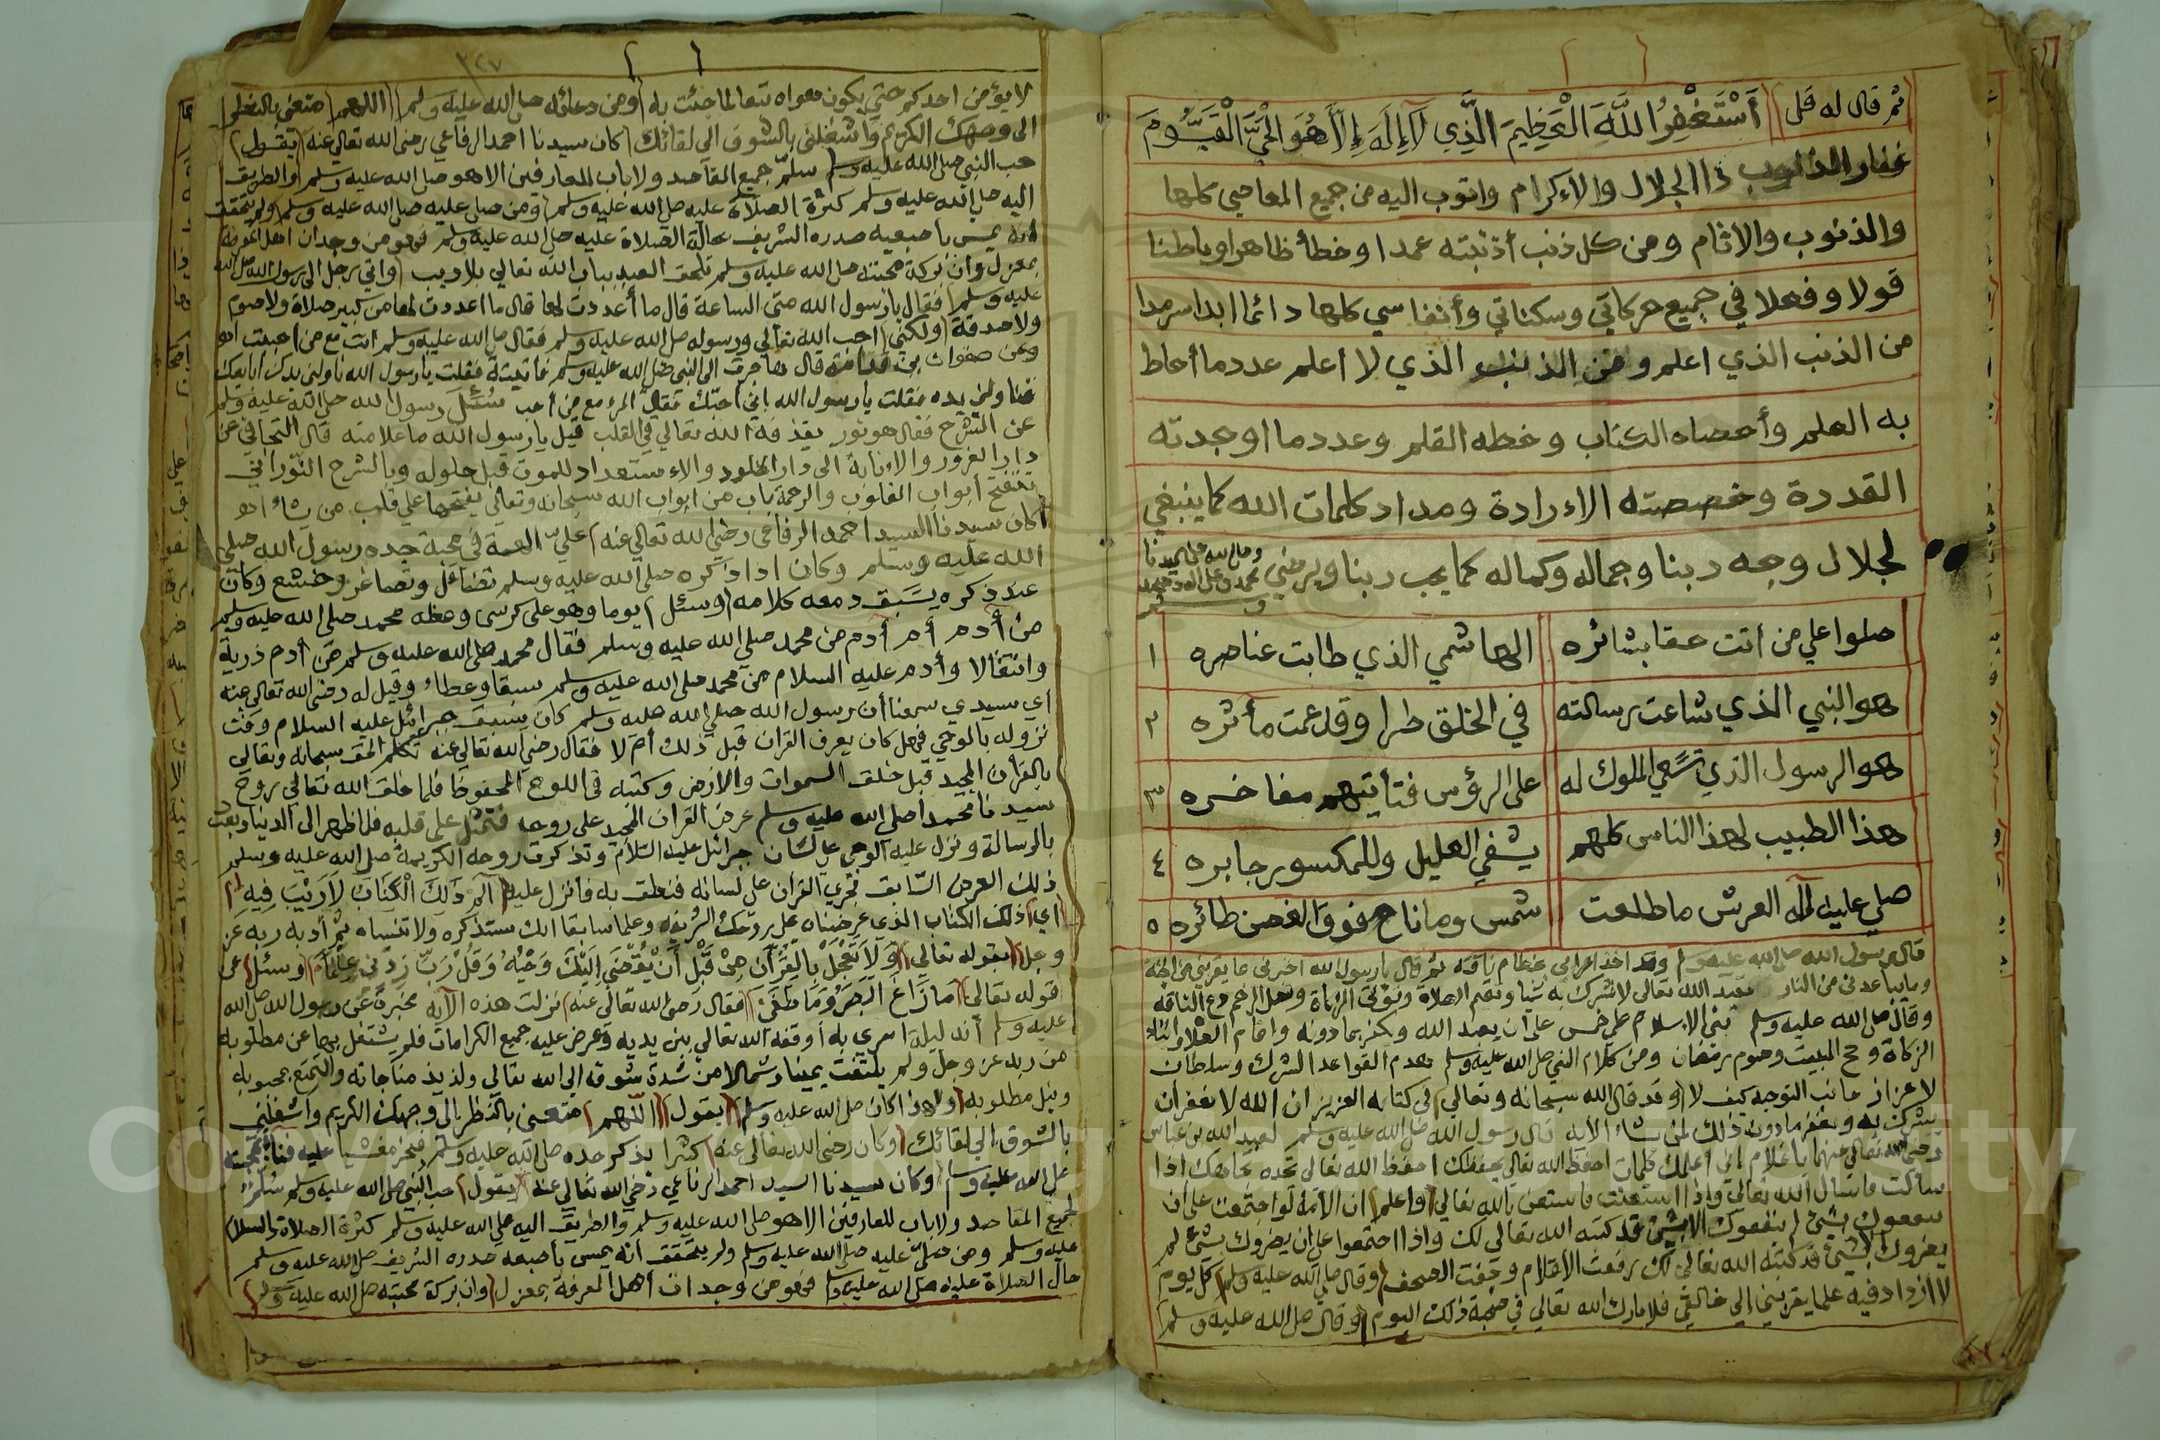 ثم قال له قل أَسْتَغْفِرُ اللَّهَ الْعَظِيمَ الَّذِي لَا إِلَهَ إِلَّا هُوَ الْحَيَّ الْقَيُّومَ
غفار الذنوب ذا الجلال والاكرام واتوب اليه من جميع المعاصي كلها
والذنوب والاثام ومن كل ذنب أذنبته عمدا وخطأ ظاهرا وباطنا
قولا وفعلا في جميع حركاتي وسكناتي وأنفاسي كلها دائما ابدا سرمدا
من الذنب الذي اعلم ومن الذنب الذي لا اعلم عدد ما أحاط
به العلم وأحصاه الكتاب وخطه القلم وعدد ما اوجدته
القدرة وخصصته الارادة ومداد كلمات الله كما ينبغي
لجلال وجه ربنا وجماله وكماله كما يحب ربنا ويرضى
صلوا علي من أتت حقا بشائره الهاشمي الذي طابت عناصره ١
هو النبي الذي شاعت رسالته في الخلق طرا وقد عمت مأثره ٢
هو الرسول الذي تسعي الملوك له على الرؤس فتأتيهم مفاخره ٣
هذا الطبيب لهذا الناس كلهم يشفي العليل وللمكسور جابره ٤
صلي عليه اله العرش ما طلعت شمس وما ناح فوق الغصن طائره ٥
قال رسول الله صلى الله عليه وسلم وقد اخذ اعرابي بخطام ناقته ثم قال يا رسول الله اخبرني بما يقربني من الجنة
وما يباعدني من النار تعبد الله تعالى لا تشرك به شيا وتقيم الصلاة وتؤتي الزكاة وتصل الرحم دع الناقه
وقال صلى الله عليه وسلم بني الاسلام علي خمس على ان يعبد الله ويكفر بما دونه واقام الصلاة وايتاء
الزكاة وحج البيت وصوم رمضان ومن كلام النبي صلى الله عليه وسلم
وقد قال الله سبحانه وتعالي في كتابه العزيز ان الله لا يغفر أن
يشرك به ويغفر ما دون ذلك لمن يشاء الآيه قال رسول الله صلى الله عليه وسلم لعبد الله بن عباس
رضي الله تعالى عنهما يا غلام اني اعلمك كلمات احفظ الله تعالى يحفظك احفظ الله تعالى تجده تجاهك اذا
سالت فاسأل الله تعالى واذا استعنت فاستعن بالله تعالى واعلم ان الأمة لو اجتمعت على ان
ينفعوك بشئ لم ينفعوك الا بشئ قد كتبه الله تعالى لك واذا اجتمعوا على ان يضروك بشئ لم
يضروك الا بشئ قد كتبه الله تعالى لك رفعت الأقلام وجفت الصحف وقال صلى الله عليه وسلم كل يوم
لا ازداد فيه علما يقربني إلى خالقي فلا بارك الله تعالي في صحبة ذلك اليوم وقال صلى الله عليه وسلم
لا يؤمن احدكم حتى يكون هواه تبعا لما جئت به ومن دعائه صلى الله عليه وسلم اللهم متعني بالنظر
الى وجهك الكريم واشغلني بالشوق الى لقائك كان سيدنا احمد الرفاعي رضى الله تعالى عنه يقول
حب النبي صلى الله عليه وسلم سلم جميع المقاصد ولا باب للعارفين الا هو صلى الله عليه وسلم والطريق
اليه صلى الله عليه وسلم كثرة الصلاة عليه صلى الله عليه وسلم ومن صلى عليه صلى الله عليه وسلم ولم يتحقق
أنه يمس باصبعيه صدره الشريف حالة الصلاة عليه صلى الله عليه وسلم فهو من وجدان اهل المعرفة
بمعزل وان بركة محبته صلى الله عليه وسلم تلحق العبد بباب الله تعالي بلا ريب واتي رجل الى رسول الله صلى الله
عليه وسلم فقال يا رسول الله متى الساعة قال ما أعددت لها قال ما اعددت لها من كبير صلاة ولا صوم
ولا صدقة ولكني احب الله تعالي ورسوله صلى الله عليه وسلم فقال صلى الله عليه وسلم انت مع من احببت
وعن صفوان بن قدامة قال هاجرت الى النبي صلى الله عليه وسلم فأتيته فقلت يا رسول الله ناولني يدك أبايعك
فناولني يده فقلت يا رسول الله اني احبك فقال المرء مع من أحب سئل رسول الله صلى الله عليه وسلم
عن الشرح فقال هو نور يقذفه الله تعالي في القلب قيل يا رسول الله ما علامته قال التجافي عن
دار الغرور والانابة الى دار الخلود والاستعداد للموت قبل حلوله وبالشرح النوراني
تنفتح أبواب القلوب والرحمة باب من ابواب الله سبحانه وتعالي يفتحها علي قلب من يشاء
كان سيدنا السيد احمد الرفاعي رضي الله تعالي عنه عليّ الهمة في محبة جده رسول الله صلى
الله عليه وسلم وكان اذا ذكره صلى الله عليه وسلم تضائل وتصاغر وخشع وكان
عند ذكره يسبق دمعه كلامه وسئل يوما وهو على كرسى وعظه محمد صلى الله عليه وسلم
من أدم أم أدم من محمد صلى الله عليه وسلم فقال محمد صلى الله عليه وسلم من أدم ذرية
وانتقالا وأدم عليه السلام من محمد صلى الله عليه وسلم سبقا وعطاء وقيل له رضي الله تعالى عنه
أي سيدي سمعنا أن رسول الله صلي الله عليه وسلم كان يسبق جبرائيل عليه السلام وقت
نزوله بالوحي فهل كان يعرف القران قبل ذلك أم لا فقال رضي الله تعالى عنه تكلم الحق سبحانه وتعالي
بالقرأن المجيد قبل خلق السموات والارض وكتبه في اللوح المحفوظ فلما خلق الله تعالى روح
سيدنا محمد صلى الله عليه وسلم عرض القران المجيد على روحه فتمثل على قلبه فلما ظهر الى الدنيا وبعث
بالرسالة ونزل عليه الوحي على لسان جبرائيل عليه السلام وتذكرت روحه الكريمة صلى الله عليه وسلم
ذلك العرض السابق فجري القران على لسانه فنطق به فأنزل عليه المر ذَلِكَ الْكِتَابُ لَا رَيْبَ فِيهِ
اي ذلك الكتاب الذي عرضناه على روحك الشريفه وعلمنا سابقا انك ستذكره ولا تنساه ثم أدبه ربه عز
وجل بقوله تعالي وَلَا تَعْجَلْ بِالْقُرْآنِ مِنْ قَبْلِ أَنْ يُقْضَى إِلَيْكَ وَحْيُهُ وَقُلْ رَبِّ زِدْنِي عِلْمًا وسئل عن
قوله تعالى مَا زَاغَ الْبَصَرُ وَمَا طَغَى فقال رضي الله تعالى عنه نزلت هذه الآية مخبرة عن رسول الله صلى الله
عليه وسلم أنه ليلة اسرى به أوقفه الله تعالي بين يديه وعرض عليه جميع الكرامات فلم يشتغل بها عن مطلوبه
من ربه عز وجل ولم يلتفت يمينا وشمالا من شدة شوقه الى الله تعالي ولذيذ مناجاته والتمتع بمحبوبه
ونيل مطلوبه ولهذا كان صلى الله عليه وسلم يقول اللهم متعني بالنظر الى وجهك الكريم واشغلني
بالشوق الى لقائك وكان رضى الله تعالى عنه كثيرا يذكر جده صلى الله عليه وسلم فيخر مغشيا عليه فناء بمحبته
صلى الله عليه وسلم وكان سيدنا السيد احمد الرفاعي رضي الله تعالي عنه يقول حب النبي صلى الله عليه وسلم سلم
لجميع المقاصد ولا باب للعارفين الا هو صلى الله عليه وسلم والطريق اليه صلى الله عليه وسلم كثرة الصلاة والسلام
عليه وسلم ومن صلى عليه صلى الله عليه وسلم ولم يتحقق أنه يمس بأصبعه صدره الشريف صلى الله عليه وسلم
حال الصلاة عليه صلى الله عليه وسلم فهو من وجدان أهل المعرفة بمعزل وان بركة محبته صلى الله عليه وسلم